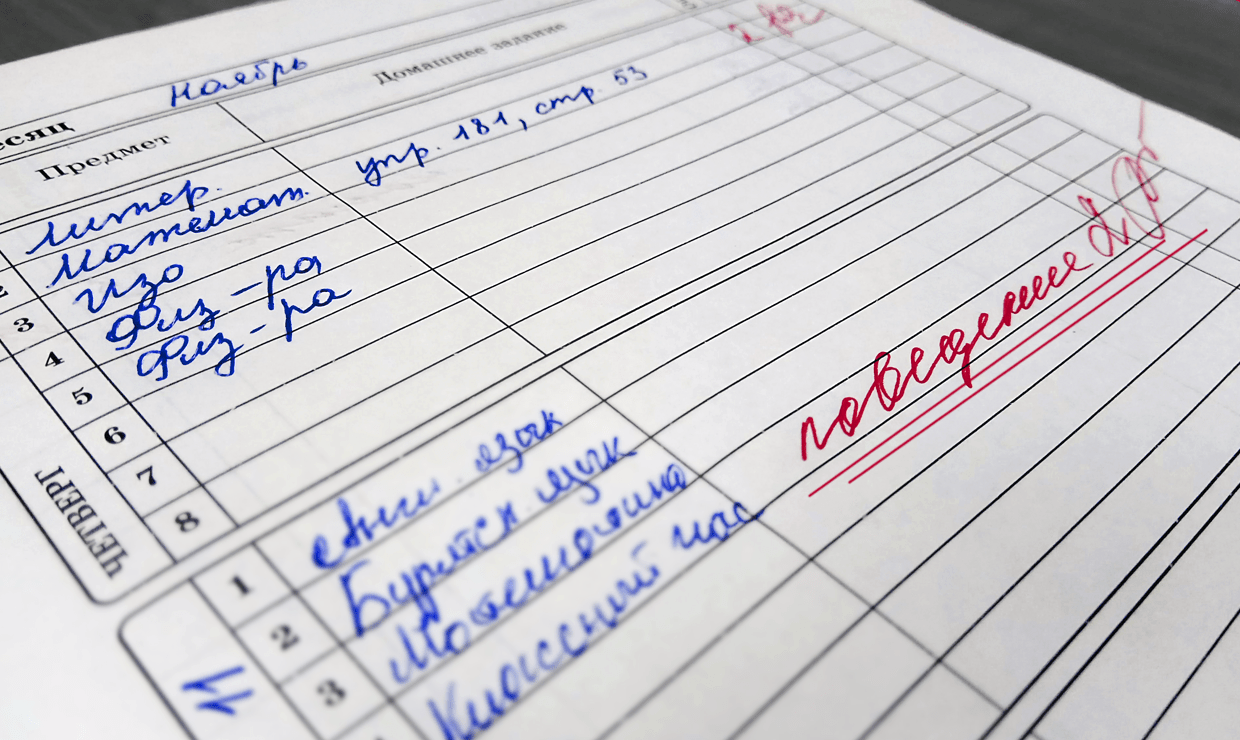 есяц Ноябрь
Предмет Домашнее задание
Литер.
2 Математ. упр. 181, стр. 53
3 Изо
4 Физ-ра
5 Физ-ра
6
7
8
ЧЕТВЕРГ
поведение
1 Англ. язык
2 Бурятск. язык
3 Математика
Классный час